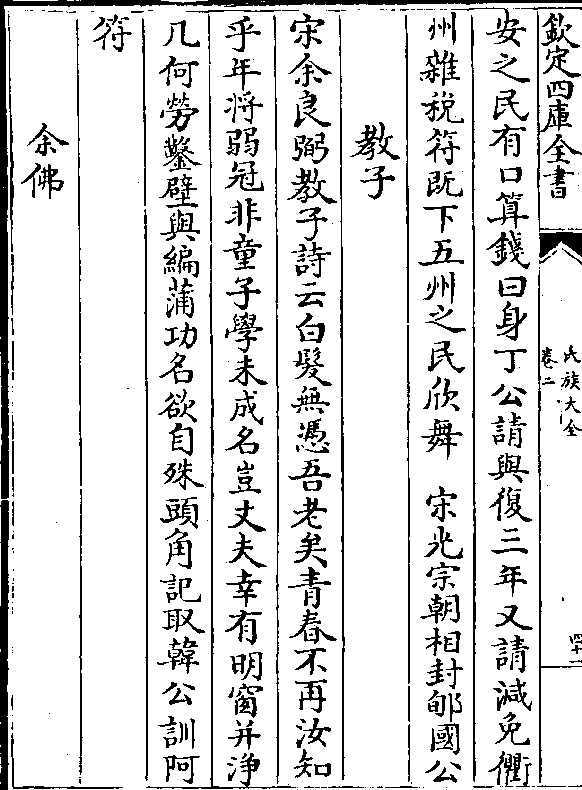 欽定四庫全書
氏族大全
卷二
四十二
安之民有口算錢曰身丁公請與復三年又請減免衢
州雜税符既下五州之民欣舞　宋光宗朝相封郇國公
教子
宋余良弼教子詩云白髮無憑吾老矣青春不再汝知
乎年將弱冠非童子學未成名豈丈夫幸有明窗并淨
几何勞鑿壁與編蒲功名欲自殊頭角記取韓公訓阿
符
余佛